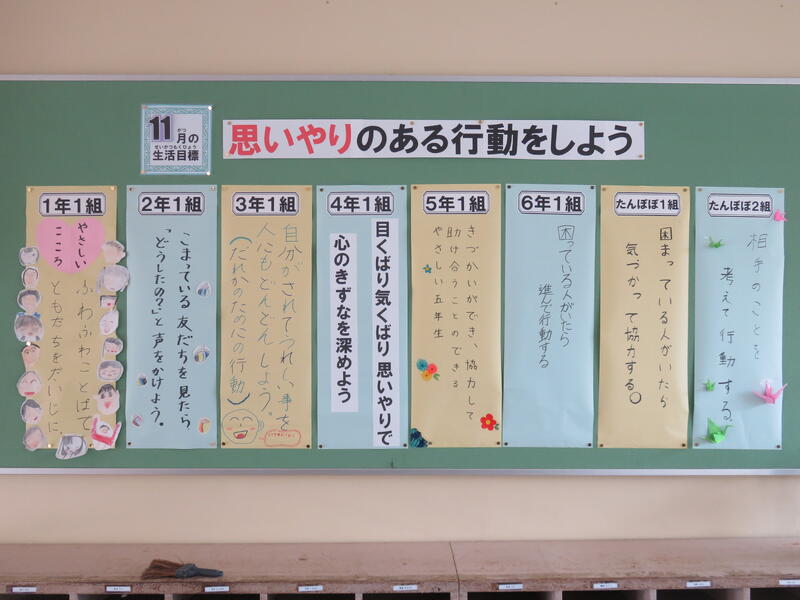 11月の
がつ
せいかつもくひょう
生活目標
思いやりのある行動をしよう
1年1組
やさしい
こころ
ふわふわことばで
ともだちをだいじに
2年1組
こまっている友だちを見たら
「どうしたの?」と声をかけよう。
3年1組
自分がされてうれしい事を
人にもどんどんしよう。
(だれかのためにの行動)
4年1組
目くばり気くばり思いやりで
心のきずなを深めよう
5年1組
きづかいができ、協力して
助け合うことのできる
やさしい五年生
6年1組
困っている人がいたら
進んで行動する
たんぽぽ1組
困まっている人がいたら
気づかって協力する。
たんぽぽ2組
相手のことを
考えて行動する